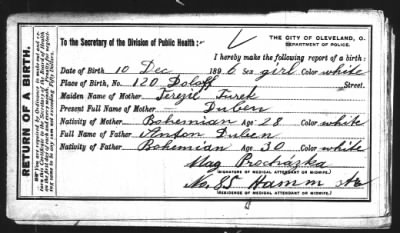 THE CITY OF CLEVELAND, O.
DEPARTMENT OF POLICE.
To the Secretary of the Division of Public Health:
I hereby make the following report of a birth:
Date of Birth 10 Dec 1896 Sex girl Color white
Place of Birth, No. 120 Doloff Street.
Maiden Name of Mother Terezil Turek
Present Full Name of Mother Duben
Nativity of Mother Bohemian Age 28 Color white
Full Name of Father Anton Duben
Nativity of Father Bohemian Age 30 Color white
Mag Procházka
(SIGNATURE OF MEDICAL ATTENDANT OR MIDWIFE.)
No. 85 Hamm
(RESIDENCE OF MEDICAL ATTENDANT OR MIDWIFE.)
RETURN OF A BIRTH.